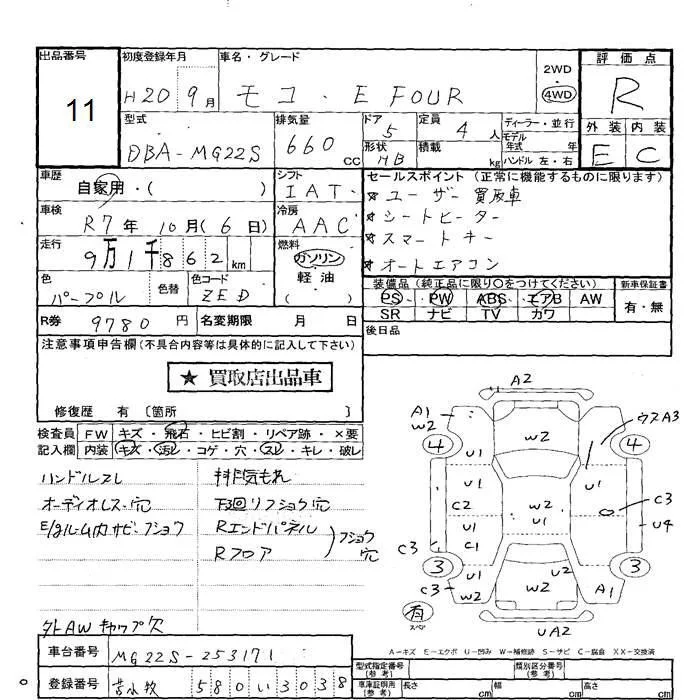 出品番号 初度登録年月 車名・グレード 2WD 評価点
11 H20 9月 モコ・E FOUR 4WD R
型式 排気量 ドア 定員 ディーラー・並行 外装 内装
DBA-MG22S 660cc 5 4人 モデル年式 年 E C
形状 HB 積載 kg ハンドル 左・右
車歴 自家用・( ) シフト IAT セールスポイント (正常に機能するものに限ります)
★ユーザー買取車
車検 R7年10月(6日) 冷房 AAC ★シートヒーター
★スマートキー
走行 9万1千862km 燃料 ガソリン ★オートエアコン
色 パープル 色替 色コード ZED 軽油 ( )
装備品 (純正品に限り○をつけてください) 新車保証書
PS・PW・ABS・エアB AW 有・無
SR ナビ TV カワ
R券 9780円 名変期限 月 日 後日品
注意事項申告欄(不具合内容等は具体的に記入して下さい)
★買取店出品車
修復歴 有 〔箇所 〕
検査員 FW キズ・飛石・ヒビ割・リペア跡・×要
記入欄 内装 キズ・汚レ・コゲ・穴・スレ・キレ・破レ
ハンドルスレ 排気もれ
オーディオレス・穴 下回りフショク穴
E/gルーム内サビ・フショク Rエンドパネル
Rフロア フショク穴
外AWキャップ欠
A2
A1 W2 W2 ウスA3
4 4
U1 U1
U1 C2 W2 U1 C3
U1 U4
C3 C1
3 3
U1 U2
C3 W2 W2 A1
有 スペア UA2
A-キズ E-エクボ U-凹み W-補修跡 S-サビ C-腐食 XX-交換済
車台番号 MG22S-253171
型式指定番号(参考) 類別区分番号(参考)
登録番号 苫小牧 580い3038
車庫証明用(参考) 長さ cm 幅 cm 高さ cm